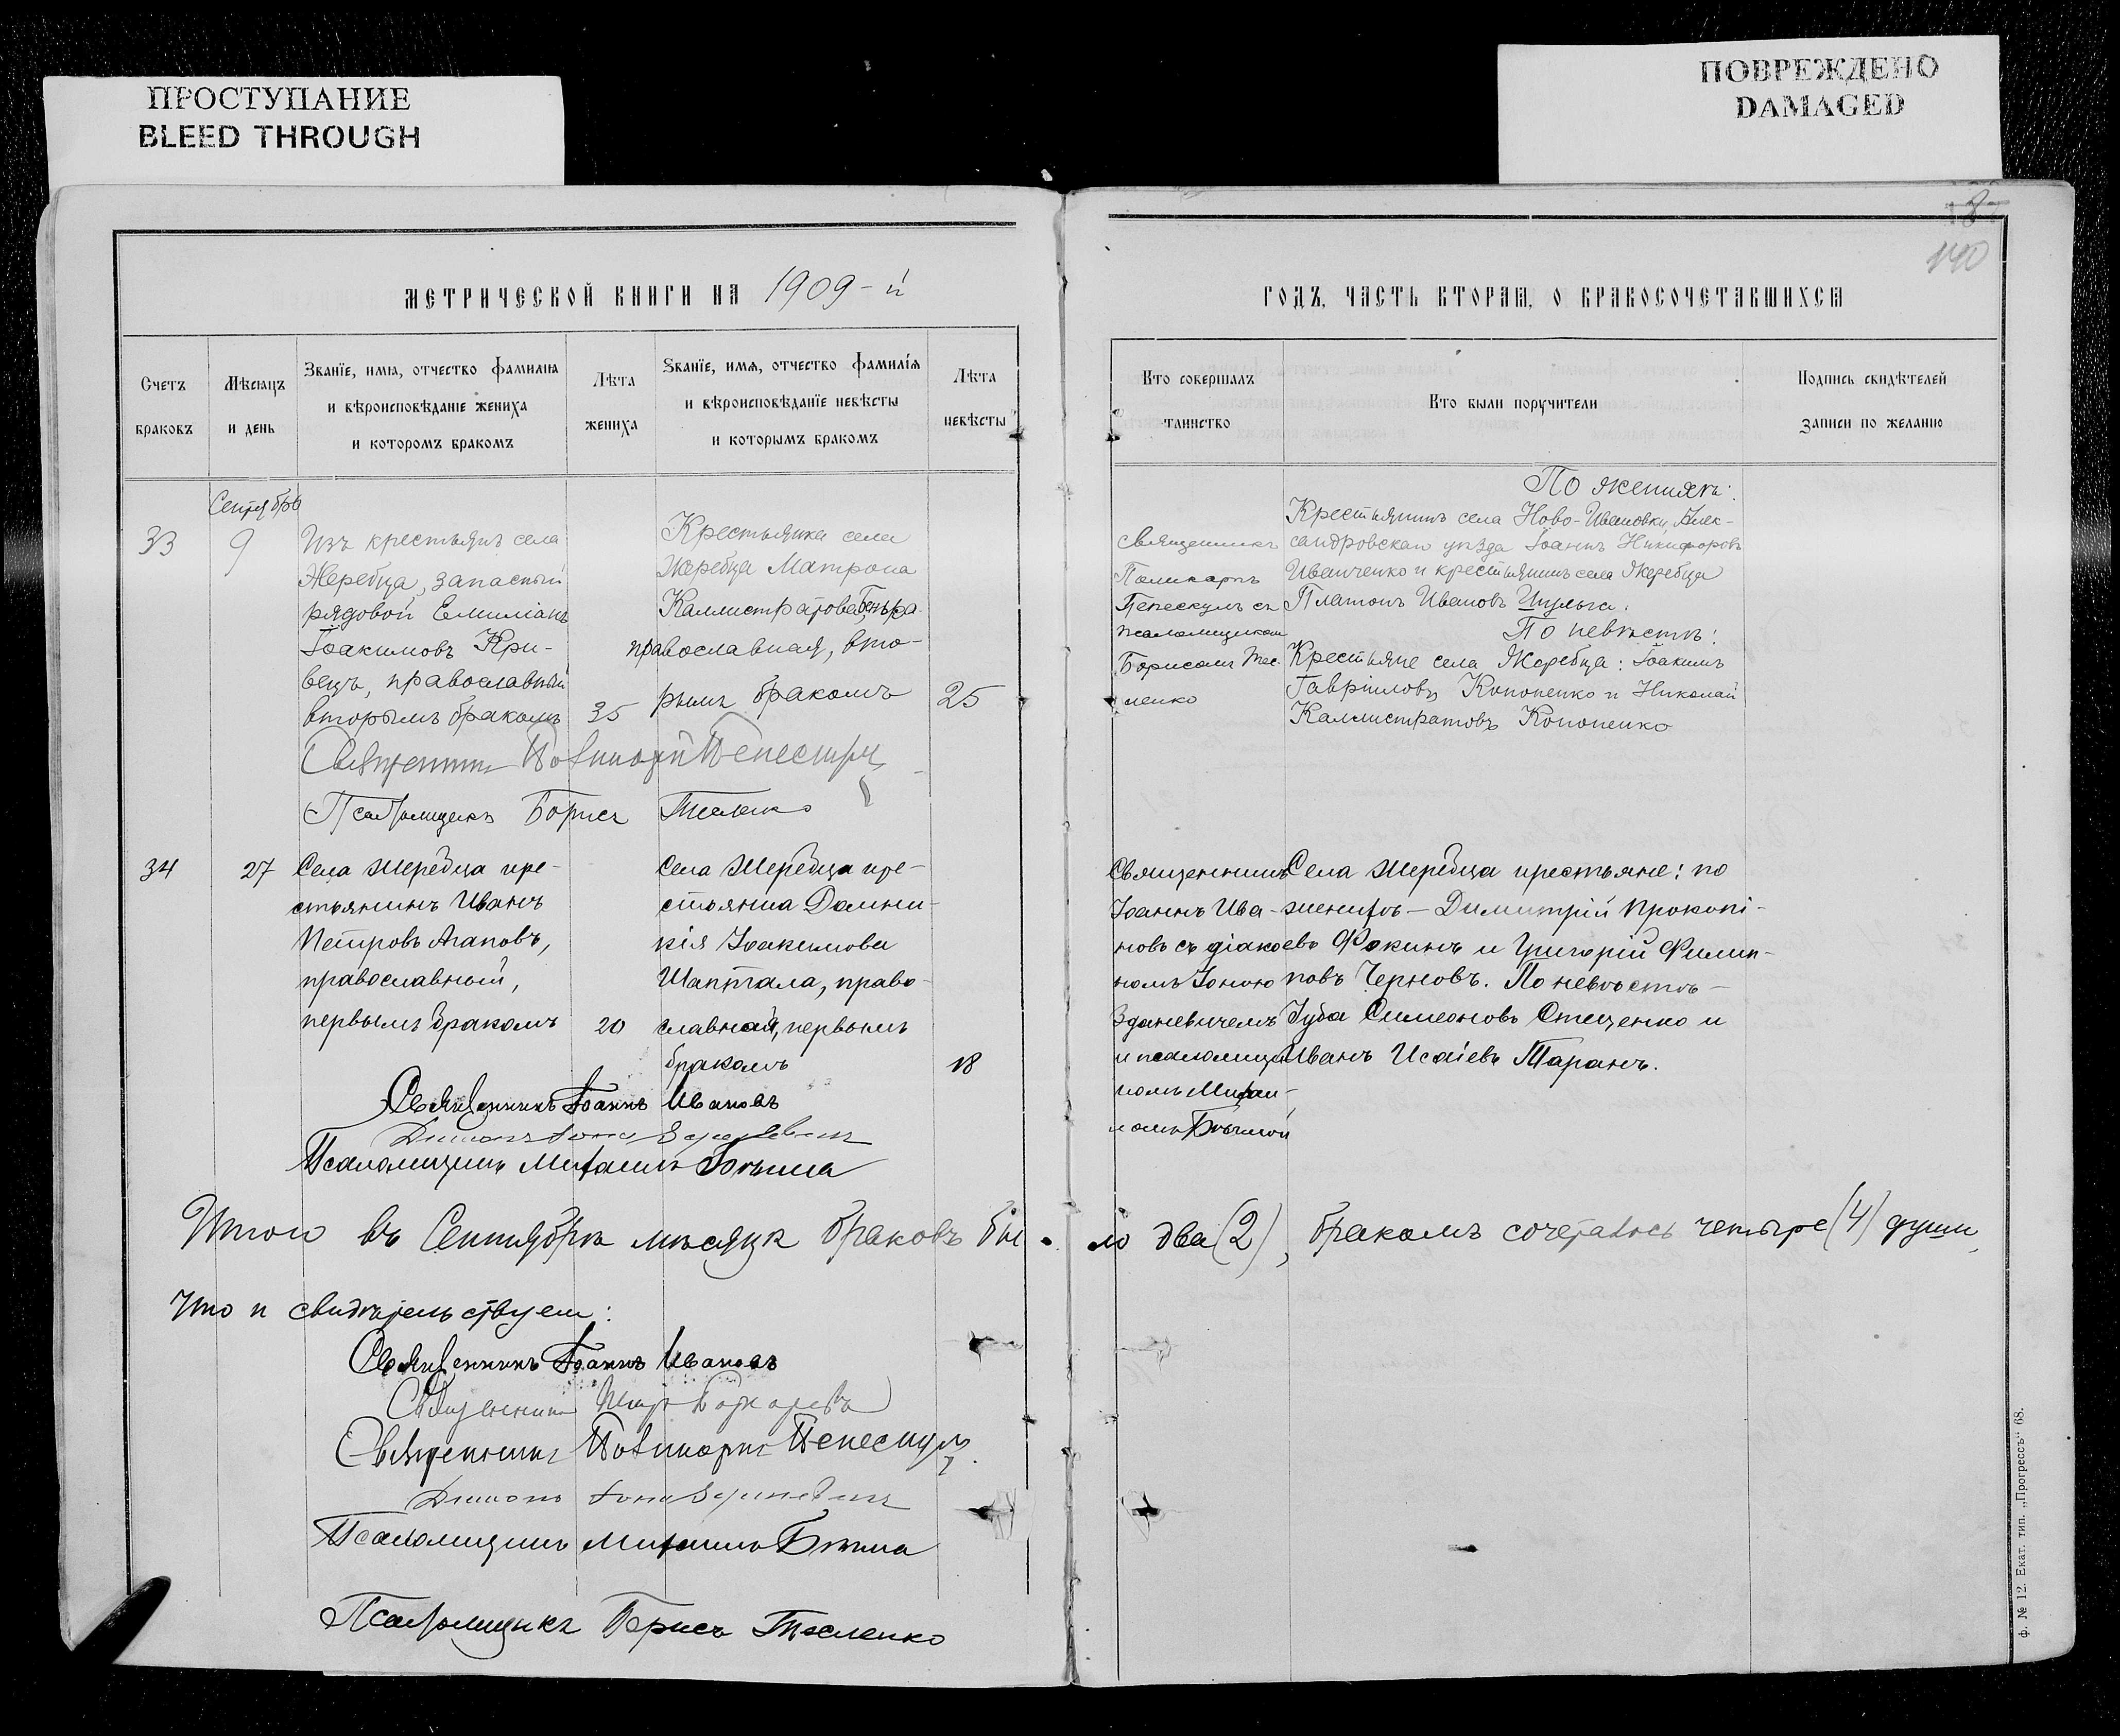 ПРОСТУПАНИЕ
BLEED THROUGH
ПОВРЕЖДЕНО
DAMAGED
140
МЕТРИЧЕСКОЙ КНИГИ НА 1909-й
ГОДЪ, ЧАСТЬ ВТОРАЯ, О БРАКОСОЧЕТАВШИХСЯ
Счетъ
браковъ
Мѣсяцъ
и день
Званїе, имя, отчество фамилия
и вѣроисповѣданіе жениха
и которомъ бракомъ
Лѣта
жениха
Званїе, имя, отчество фамилія
и вѣроисповѣданїе невѣсты
и которымъ бракомъ
Лѣта
невѣсты
Кто совершалъ
таинство
Кто были поручители
Подпись свидѣтелей
записи по желанію
33
Сентябрь
9
Изъ крестьянъ села
Жеребца, запасный
рядовой Емиліанъ
Іоакимовъ Кри-
вецъ, православный
вторымъ бракомъ
35
Крестьянка села
Жеребца Матрона
Каллистратова
православная, вто-
рымъ бракомъ
25
Священникъ
Поликарпъ
Пепескулъ съ
псаломщикомъ
Борисомъ Тес-
ленко
По женихѣ:
Крестьянинъ села Ново-Ивановки, Алек-
сандровскаго уѣзда Іоаннъ Никифоровъ
Иванченко и крестьянинъ села Жеребца
Платонъ Ивановъ Шульга.
По невѣстѣ:
Крестьяне села Жеребца: Іоакимъ
Гавріиловъ Кононенко и Николай
Каллистратовъ Кононенко
Священникъ Поликарпъ Пепескулъ
Псаломщикъ Борисъ Тесленко
34
27
Села Жеребца кре-
стьянинъ Иванъ
Петровъ Агаповъ,
православный,
первымъ бракомъ
20
Села Жеребца кре-
стьянка Домни-
кія Іоакимова
Шаптала, право-
славная, первымъ
бракомъ
18
Священникъ
Іоаннъ Ива-
новъ съ діако-
номъ Іоною
Зданевичемъ
и псаломщи-
комъ Михаи-
ломъ
Села Жеребца крестьяне: по
женихѣ — Димитрій Прокопі-
евъ Фокинъ и Григорій Филип-
повъ Черновъ. По невѣстѣ —
Іуда Симеоновъ Стеценко и
Иванъ Исаіевъ Таранъ.
Священникъ Іоаннъ Ивановъ
Діаконъ Іона Зданевичъ
Псаломщикъ Михаилъ
Итого въ Сентябрѣ мѣсяцѣ браковъ бы-
ло два (2), бракомъ сочеталось четыре (4) души
Что и свидѣтельствуемъ:
Священникъ Іоаннъ Ивановъ
Священникъ
Священникъ Поликарпъ Пепескулъ
Діаконъ Іона Зданевичъ
Псаломщикъ Михаилъ
Псаломщикъ Борисъ Тесленко
ф. № 12. Екат. тип. „Прогрессъ" 68.